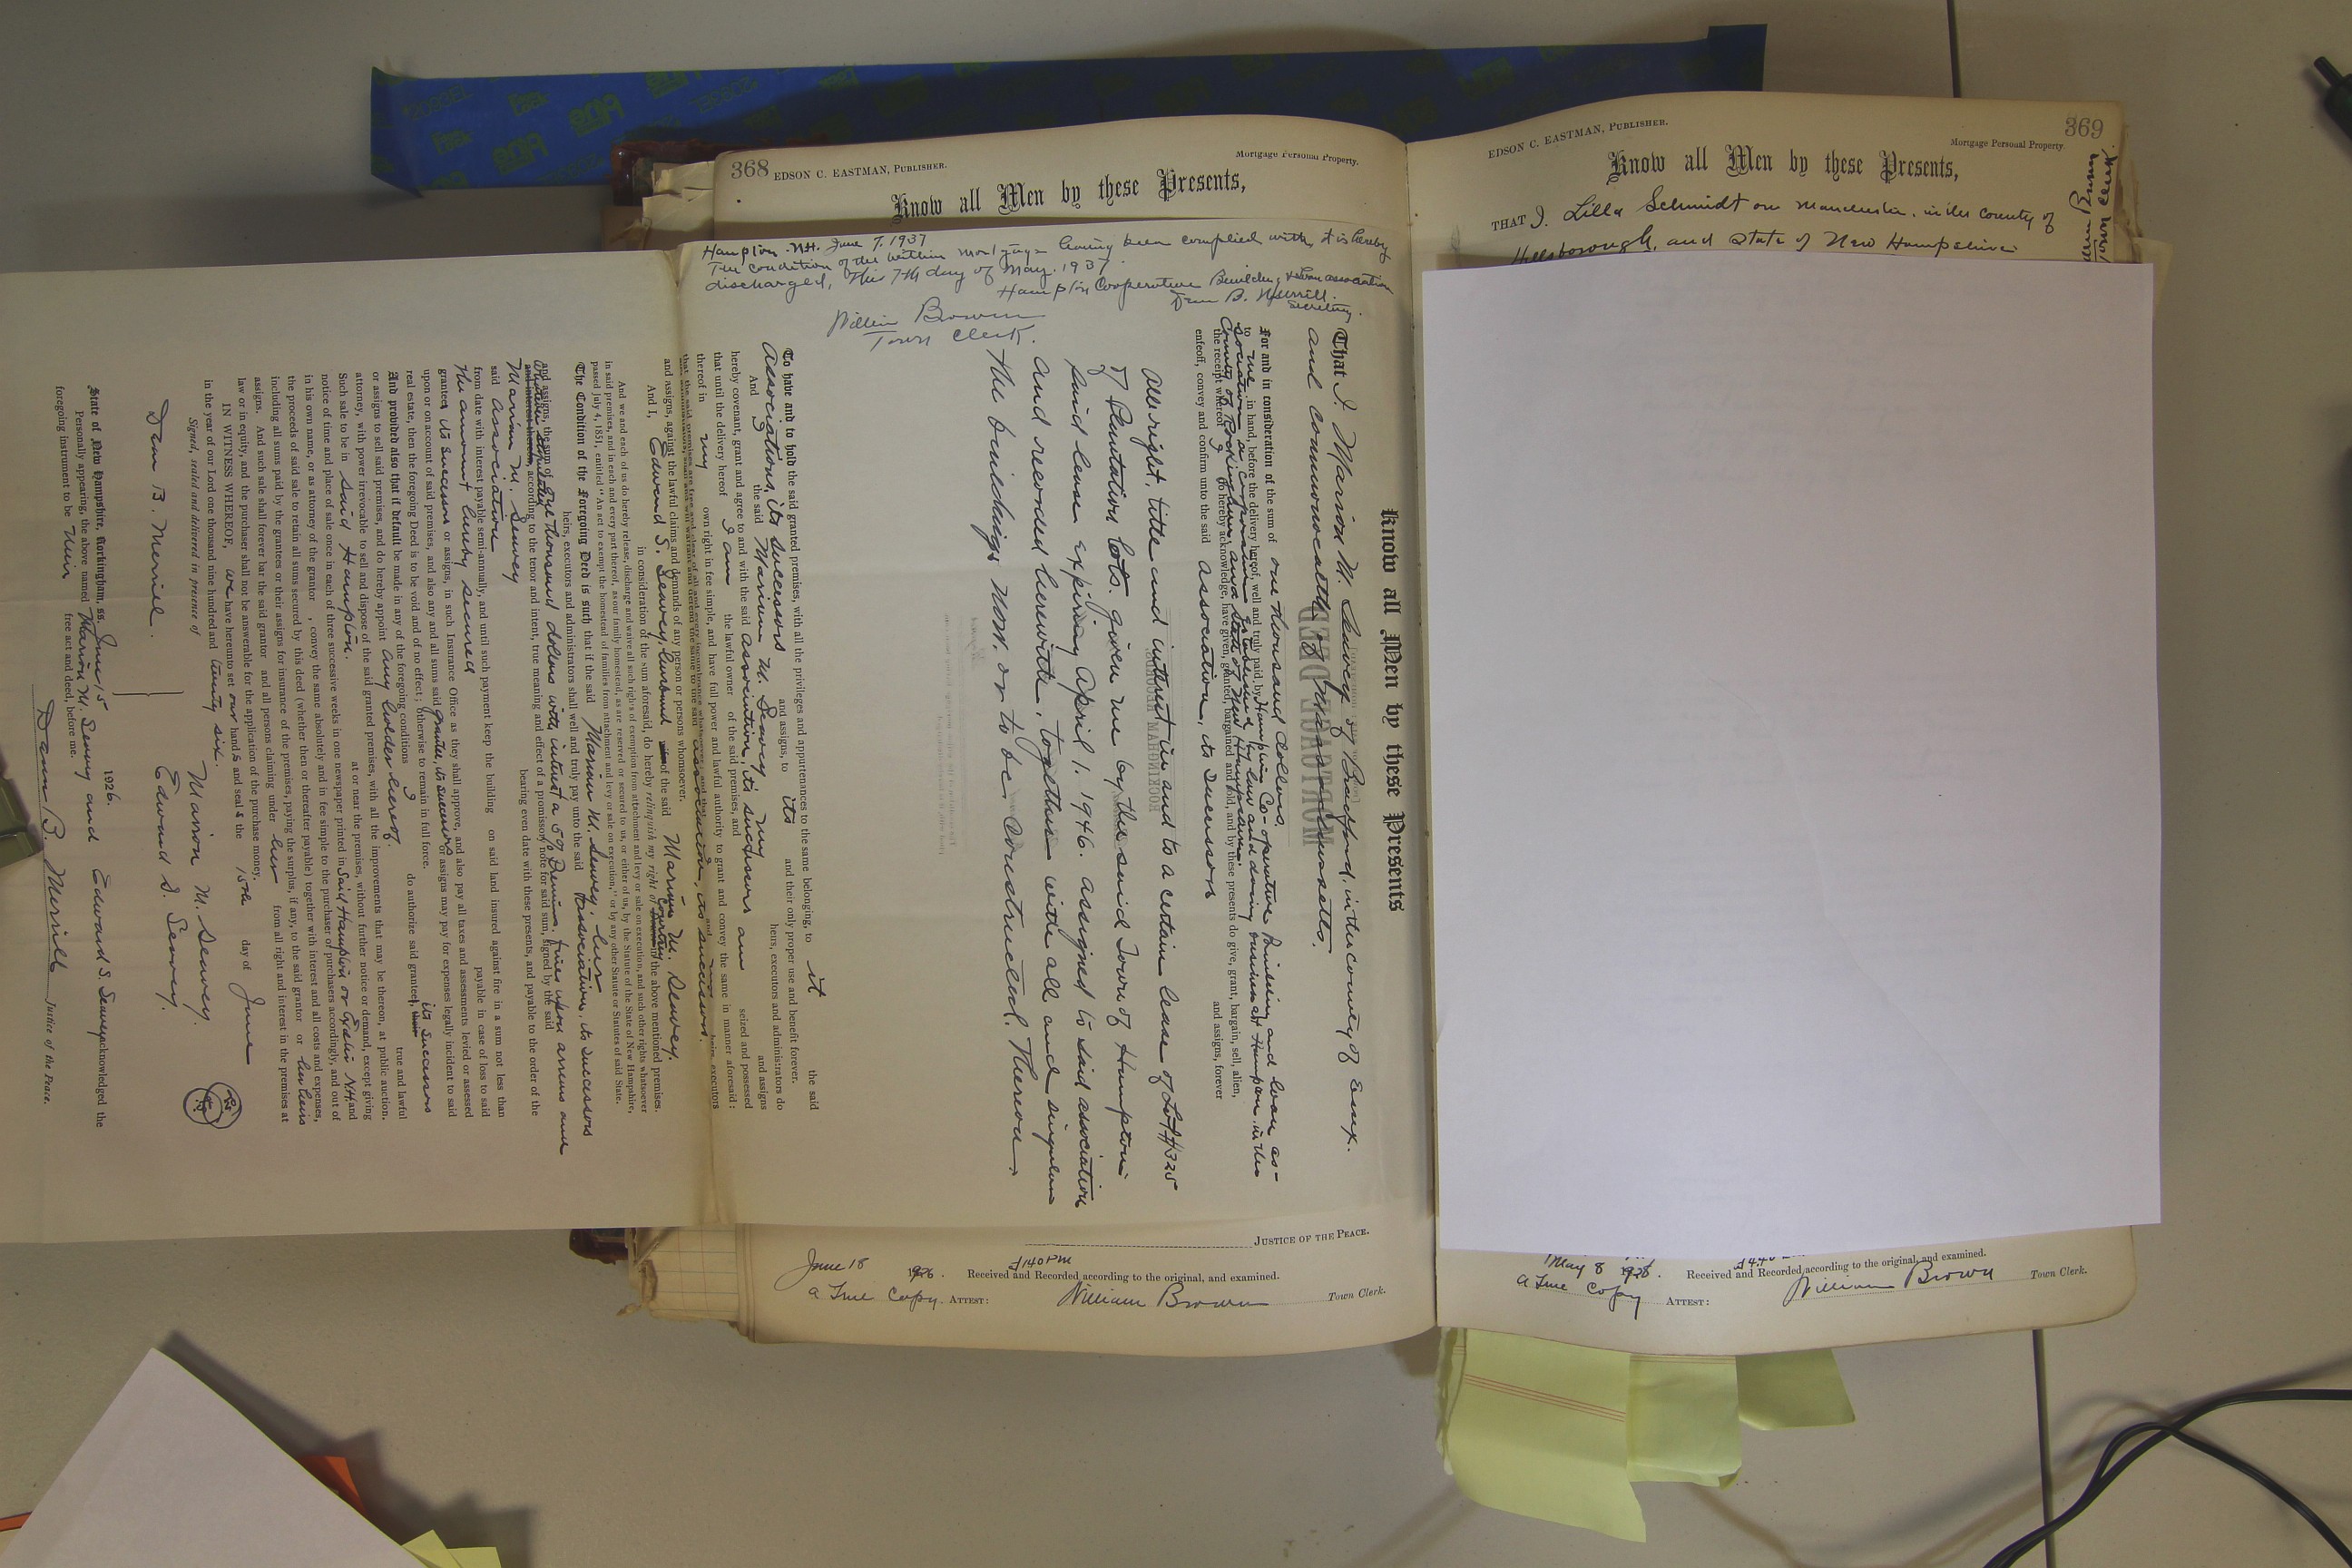 368 EDSON C. EASTMAN, PUBLISHER. Mortgage Personal Property.
Know all Men by these Presents,
Hampton N.H. June 7. 1937
The condition of the within mortgage having been complied with, it is hereby
discharged, this 7th day of May. 1937.
Hampton Cooperative Building & Loan association
Dean B. Merrill.
Secretary.
William Brown
Town Clerk.
Know all Men by these Presents
That I. Marion M. Seavey of Bradford, in the county of Essex.
and commonwealth of Massachusetts.
MORTGAGE DEED
For and in consideration of the sum of one thousand dollars,
to me in hand, before the delivery hereof, well and truly paid by Hampton Co-operative Building and loan as-
sociation a corporation established by law and doing business at Hampton in the
County of Rockingham and State of New Hampshire.
the receipt whereof I do hereby acknowledge, have given, granted, bargained and sold, and by these presents do give, grant, bargain, sell, alien,
enfeoff, convey and confirm unto the said association, its successors and assigns, forever
All right, title and interest in and to a certain lease of Lot #325
of Plantation lots. given me by the said Town of Hampton
said lease expiring April 1. 1946. assigned to said association
and recorded herewith, together with all and singular
the buildings now, or to be constructed. Thereon.
To have and to hold the said granted premises, with all the privileges and appurtenances to the same belonging, to it the said
Associations, its successors and assigns, to its and their only proper use and benefit forever.
And I the said Marion M. Seavey my heirs, executors and administrators do
hereby covenant, grant and agree to and with the said association, its successors and assigns
that until the delivery hereof I am the lawful owner of the said premises, and am seized and possessed
thereof in my own right in fee simple, and have full power and lawful authority to grant and convey the same in manner aforesaid;
and assigns, against the lawful claims and demands of any person or persons whomsoever.
And I, Edward S. Seavey, husband of the said Marion M. Seavey.
in consideration of the sum aforesaid, do hereby relinquish my right of courtesy in the above mentioned premises.
And we and each of us do hereby release, discharge and waive all such rights of exemption from attachment and levy or sale on execution, and such other rights whatsoever
in said premises, and in each and every part thereof, as our family homestead, as are reserved or secured to us, or either of us, by the Statute of the State of New Hampshire,
passed July 4, 1851, entitled "An act to exempt the homestead of families from attachment and levy or sale on execution," or by any other Statute or Statutes of said State.
The Condition of the Foregoing Deed is such that if the said Marion M. Seavey. her
heirs, executors and administrators shall well and truly pay unto the said Association, its successors
and assigns, the sum of one thousand dollars with interest a 5% Premium, fines upon arrears and
according to the tenor and intent, true meaning and effect of a promissory note for said sum, signed by the said
Marion M. Seavey bearing even date with these presents, and payable to the order of the
said Association
from date with interest payable semi-annually, and until such payment keep the building on said land insured against fire in a sum not less than
the amount hereby secured payable in case of loss to said
grantee, its successors or assigns, in such Insurance Office as they shall approve, and also pay all taxes and assessments levied or assessed
upon or on account of said premises, and also any and all sums said grantee, its successors or assigns may pay for expenses legally incident to said
real estate, then the foregoing Deed is to be void and of no effect; otherwise to remain in full force.
And provided also that if default be made in any of the foregoing conditions I do authorize said grantee, its successors
or assigns to sell said premises, and do hereby appoint any holder hereof. true and lawful
attorney, with power irrevocable to sell and dispose of the said granted premises, with all the improvements that may be thereon, at public auction.
Such sale to be in said Hampton. at or near the premises, without further notice or demand, except giving
notice of time and place of sale once in each of three successive weeks in one newspaper printed in said Hampton or Exeter N.H. and
in his own name, or as attorney of the grantor , convey the same absolutely and in fee simple to the purchaser or purchasers accordingly, and out of
the proceeds of said sale to retain all sums secured by this deed (whether then or thereafter payable) together with interest and all costs and expenses,
including all sums paid by the grantees or their assigns for insurance of the premises, paying the surplus, if any, to the said grantor or her heirs
assigns. And such sale shall forever bar the said grantor and all persons claiming under her from all right and interest in the premises at
law or in equity, and the purchaser shall not be answerable for the application of the purchase money.
IN WITNESS WHEREOF, we have hereunto set our hands and seals the 15th day of June
in the year of our Lord one thousand nine hundred and twenty six.
Signed, sealed and delivered in presence of
Marion M. Seavey.
Dean B. Merrill. Edward S. Seavey.
State of New Hampshire, Rockingham, ss. June 15 1926.
Personally appearing, the above named Marion M. Seavey and Edward S. Seavey acknowledged the
foregoing instrument to be their free act and deed, before me.
Dean B. Merrill Justice of the Peace.
JUSTICE OF THE PEACE.
June 18 1926. 1 40 PM Received and Recorded according to the original, and examined.
A True Copy. ATTEST: William Brown Town Clerk.
EDSON C. EASTMAN, PUBLISHER. Mortgage Personal Property. 369
Know all Men by these Presents,
THAT I. Lilla Schmidt on Manchester. in the county of
Hillsborough, and State of New Hampshire
May 8 1926. Received and Recorded according to the original, and examined.
A True Copy ATTEST: William Brown Town Clerk.